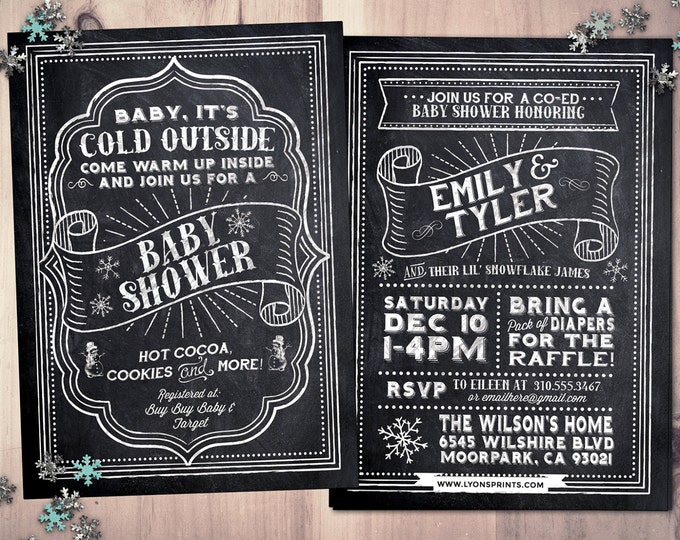 BABY, IT'S
COLD OUTSIDE
COME WARM UP INSIDE
AND JOIN US FOR A
BABY
SHOWER
HOT COCOA,
COOKIES and MORE!
Registered at:
Buy Buy Baby &
Target
JOIN US FOR A CO-ED
BABY SHOWER HONORING
EMILY &
TYLER
AND THEIR LIL' SNOWFLAKE JAMES
SATURDAY
DEC 10
1-4PM
BRING A
Pack of DIAPERS
FOR THE
RAFFLE!
RSVP TO EILEEN AT 310.555.3467
or emailhere@gmail.com
THE WILSON'S HOME
6545 WILSHIRE BLVD
MOORPARK, CA 93021
WWW.LYONSPRINTS.COM